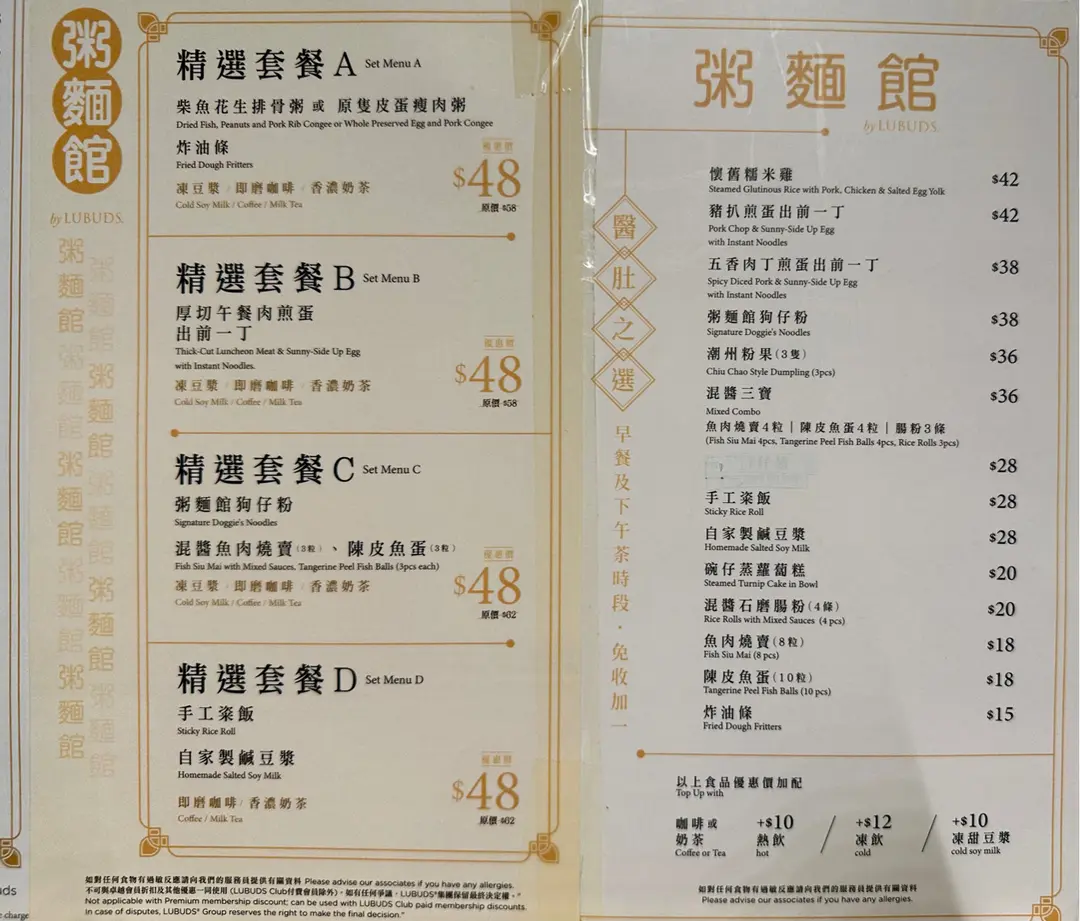 粥
麵
館
by LUBUDS.
精選套餐A Set Menu A
柴魚花生排骨粥 或 原隻皮蛋瘦肉粥
Dried Fish, Peanuts and Pork Rib Congee or Whole Preserved Egg and Pork Congee
炸油條
Fried Dough Fritters
凍豆漿 / 即磨咖啡 / 香濃奶茶
Cold Soy Milk / Coffee / Milk Tea
優惠價
$48
原價 $58
精選套餐B Set Menu B
厚切午餐肉煎蛋
出前一丁
Thick-Cut Luncheon Meat & Sunny-Side Up Egg
with Instant Noodles.
凍豆漿 / 即磨咖啡 / 香濃奶茶
Cold Soy Milk / Coffee / Milk Tea
優惠價
$48
原價 $58
精選套餐C Set Menu C
粥麵館狗仔粉
Signature Doggie's Noodles
混醬魚肉燒賣(3粒)、陳皮魚蛋(3粒)
Fish Siu Mai with Mixed Sauces, Tangerine Peel Fish Balls (3pcs each)
凍豆漿 / 即磨咖啡 / 香濃奶茶
Cold Soy Milk / Coffee / Milk Tea
優惠價
$48
原價 $62
精選套餐D Set Menu D
手工粢飯
Sticky Rice Roll
自家製鹹豆漿
Homemade Salted Soy Milk
即磨咖啡 / 香濃奶茶
Coffee / Milk Tea
優惠價
$48
原價 $62
如對任何食物有過敏反應請向我們的服務員提供有關資料 Please advise our associates if you have any allergies.
不可與卓越會員折扣及其他優惠一同使用 (LUBUDS Club付費會員除外)。如有任何爭議，LUBUDS®集團保留最終決定權。"
Not applicable with Premium membership discount; can be used with LUBUDS Club paid membership discounts.
In case of disputes, LUBUDS® Group reserves the right to make the final decision."
粥麵館
by LUBUDS.
醫肚之選
早餐及下午茶時段・免收加一
懷舊糯米雞 $42
Steamed Glutinous Rice with Pork, Chicken & Salted Egg Yolk
豬扒煎蛋出前一丁 $42
Pork Chop & Sunny-Side Up Egg
with Instant Noodles
五香肉丁煎蛋出前一丁 $38
Spicy Diced Pork & Sunny-Side Up Egg
with Instant Noodles
粥麵館狗仔粉 $38
Signature Doggie's Noodles
潮州粉果(3隻) $36
Chiu Chao Style Dumpling (3pcs)
混醬三寶 $36
Mixed Combo
魚肉燒賣4粒｜陳皮魚蛋4粒｜腸粉3條
(Fish Siu Mai 4pcs, Tangerine Peel Fish Balls 4pcs, Rice Rolls 3pcs)
$28
手工粢飯 $28
Sticky Rice Roll
自家製鹹豆漿 $28
Homemade Salted Soy Milk
碗仔蒸蘿蔔糕 $20
Steamed Turnip Cake in Bowl
混醬石磨腸粉(4條) $20
Rice Rolls with Mixed Sauces (4 pcs)
魚肉燒賣(8粒) $18
Fish Siu Mai (8 pcs)
陳皮魚蛋(10粒) $18
Tangerine Peel Fish Balls (10 pcs)
炸油條 $15
Fried Dough Fritters
以上食品優惠價加配
Top Up with
咖啡或
奶茶
Coffee or Tea
+$10
熱飲
hot
+$12
凍飲
cold
+$10
凍甜豆漿
cold soy milk
如對任何食物有過敏反應請向我們的服務員提供有關資料
Please advise our associates if you have any allergies.